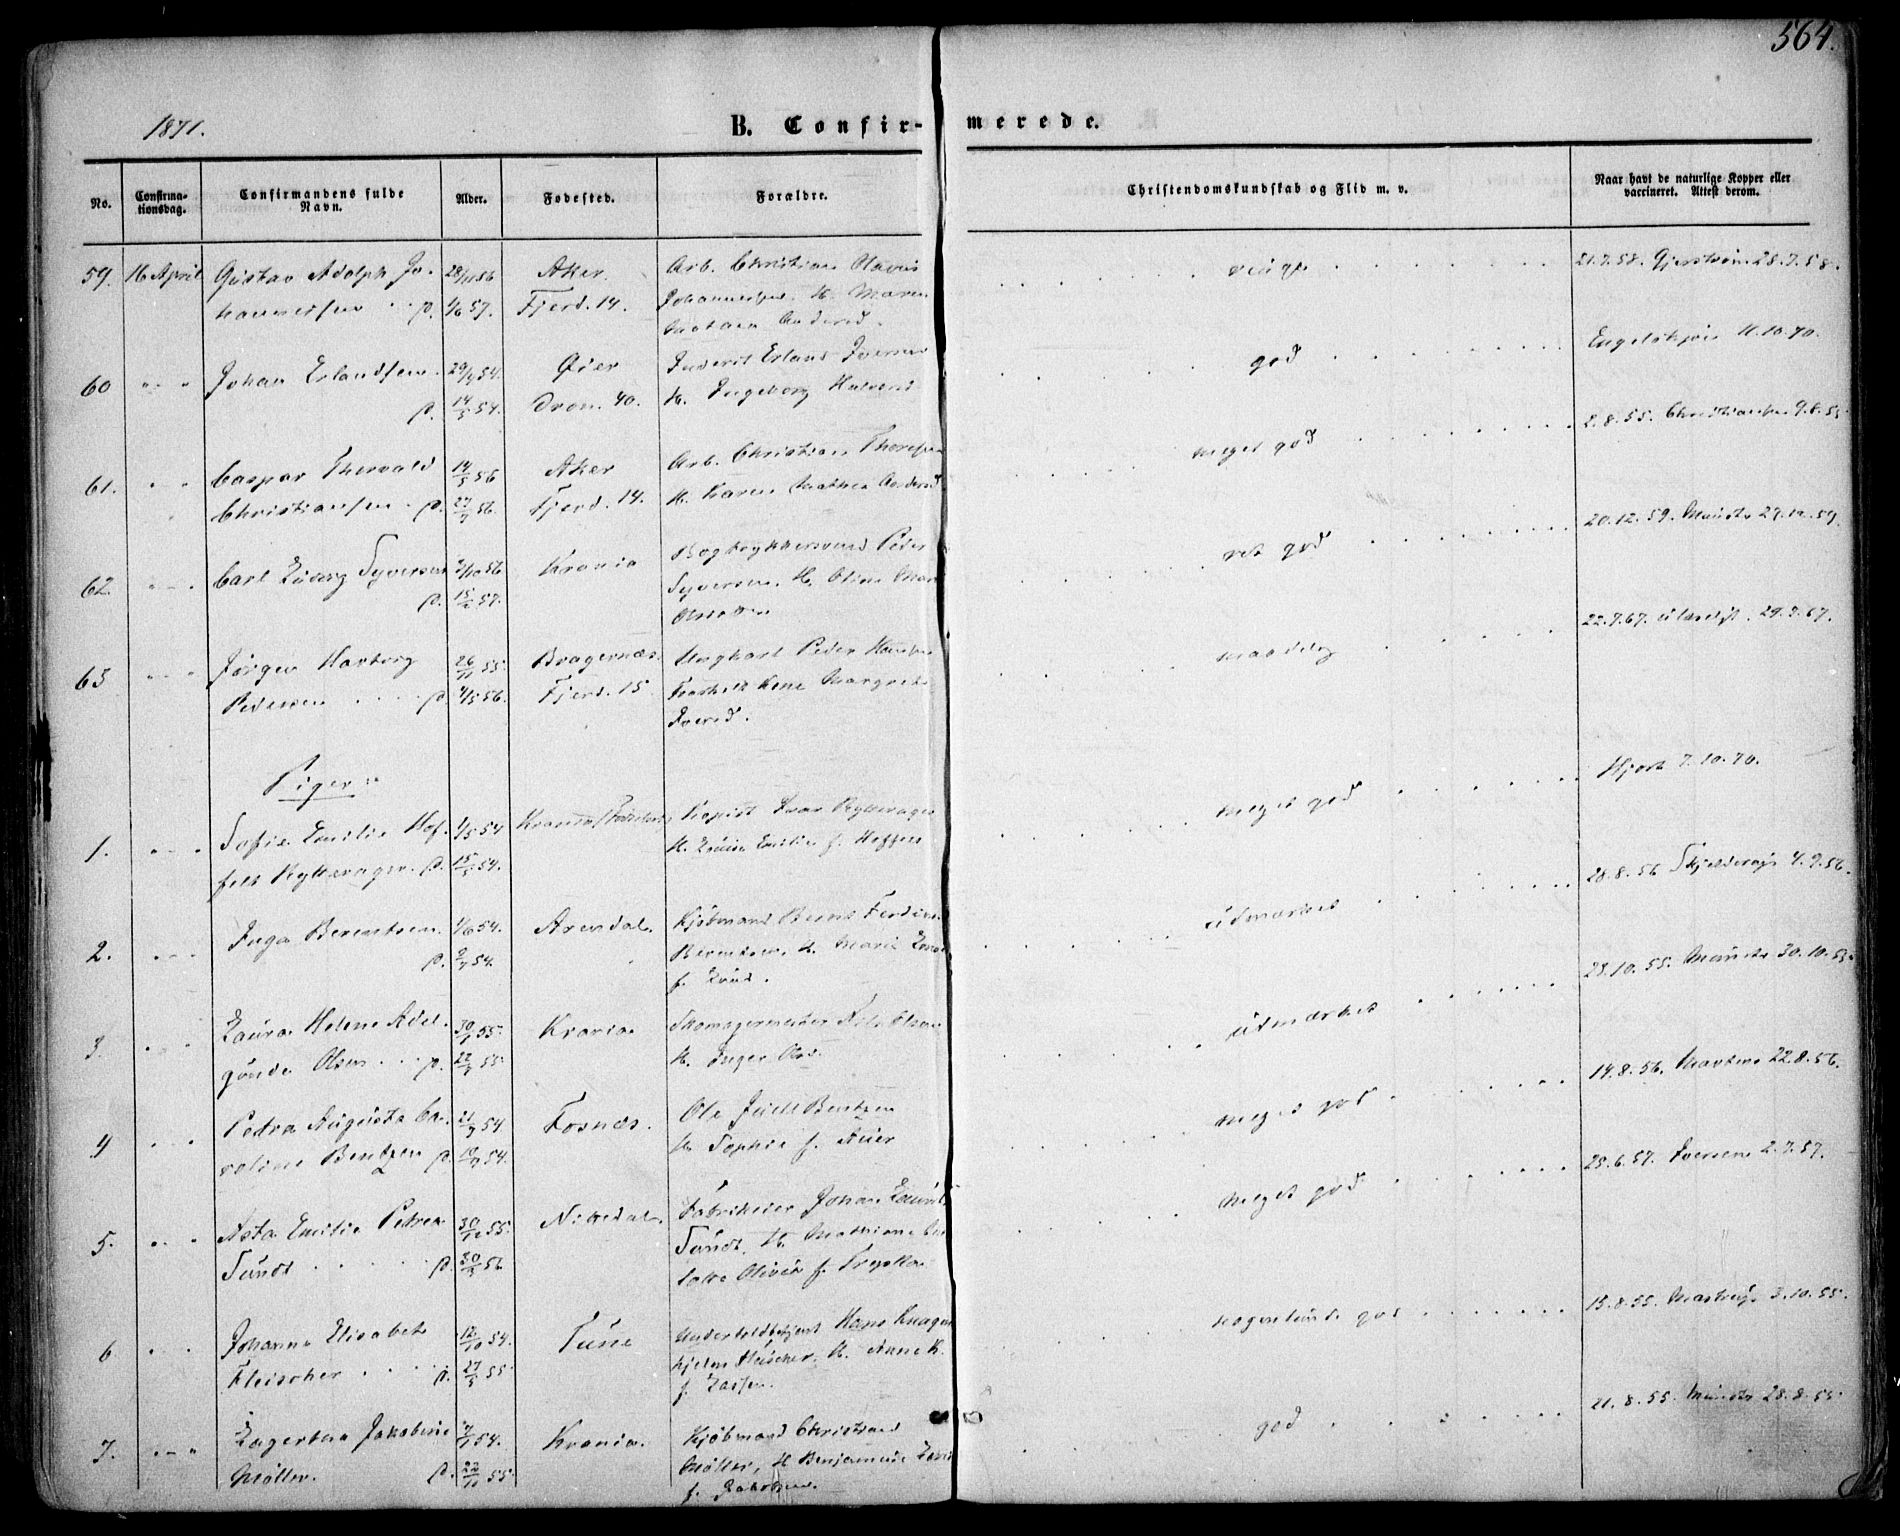 564.
1871.
B. Confirmerede.
No.
Confirmationsdag.
Confirmandens fulde Navn.
Alder.
Fødested.
Forældre.
Christendomskundskab og Flid m. v.
Naar havt de naturlige Kopper eller vaccineret. Attest derom.
59. 16 April Gustav Adolph Jo- 28/11 56 Aker Arb. Christian Olavus
hannessen p. 1/6 57. Fjerd. 14. Johannessen. H. Maren
Andersd.
21.7.58. 28.7.58.
60 " " Johan Erlandsen 29/4 54. Øier Erland Iversen god Engelskjøn 11.10.70.
p. 14/5 54. Dron. 40. H. Ingeborg Halvorsd
61. " " Caspar Thorvald 14/5 56 Aker Arb. Christian Thoresen meget god 2.8.55. Christiansen 9.8.55
Christiansen p. 27/7 56. Fjerd. 14. H. Karen Mathea Andersd
62. " " Carl Ludvig Syversen 2/10 56 Krania Bogtrykkersvend Peder ret god 20.12.59. Münster 27.12.59.
p. 15/2 57. Syversen. H. Oline Mar
63 " " Jørgen Harborg 26/11 55. Bragernæs. Peder Hansen maadelig 22.7.67. ulæseligt. 29.7.67.
Pedersen p. 4/5 56. Fjerd. 15 Fraskilt Kone Margrete
Iversd.
Piger:
1. " " Sofie Emilie Hof- 1/5 54 Krania Kopist Ivar Rytterager meget god Hjort 7.10.70.
Rytterager. p. 15/5 54. H. Louise Emilie f. Hoffen
2. " " Inga Berentsen 1/6 54. Arendal. Kjøbmand Bernt Ferdin. udmærket 28.8.56 Skjelderup 4.9.56.
p. 9/7 54. Berentsen, H. Marie
f. Lund.
3. " " Laura Helene Adel- 30/1 55. Krania Nils Olsen udmærket 23.10.55. Münster 30.10.55
gunde Olsen p. 22/7 55. H. Inger Ols.
4 " " Petra Augusta Ca- 21/7 54 Fosnæs. Ole Juell Bentzen meget god 14.8.56. Martens 22.8.56.
roline Bentzen p. 54. H. Sophie f. Auer
5. " " Asta Emilie Petrea 30/12 55. Nittedal. Fabrikeier Johan Laurits meget god 25.6.57. Iversen 2.7.57.
Tundt p. 30/3 56 Tundt. H. Mathiane
Oliver f. Tryska
6 " " Johanne Elisabet 12/10 54. Tune Undertoldbetjent Hans Knagen nogenlunde god 15.8.55. 3.10.55.
Fleischer p. 27/5 55 hjelm Fleischer. H. Anne K.
f. Lassen.
7. " " Lagertha Jakobine 54. Krania. Kjøbmand Christian god 21.8.55. Münster 28.8.55
Møller. p. 22/11 55. Møller, H Benjamine
f. Jakobsen.